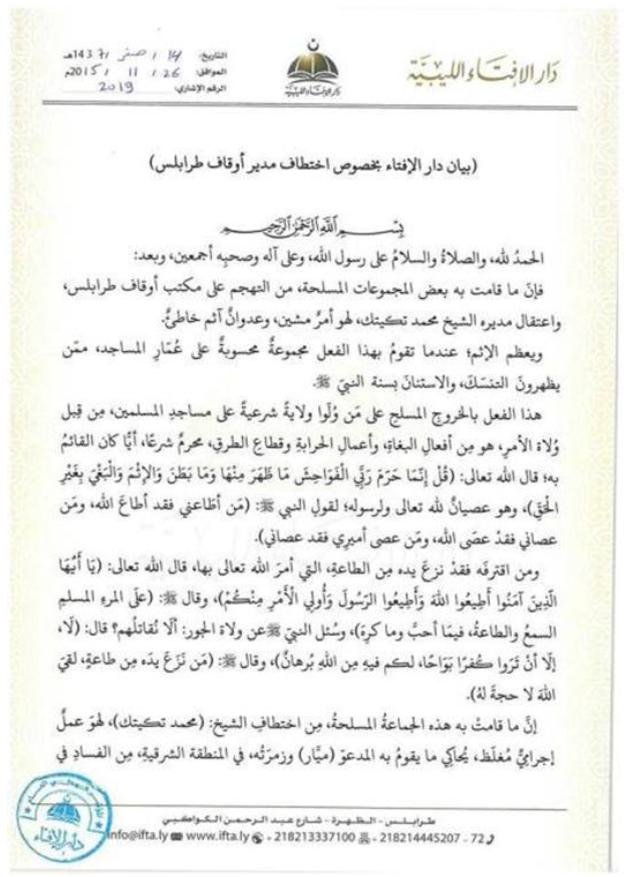 دَارُ الإِفتَاءِ اللِّيبِيَّة
دار الإفتاء الليبية
التاريخ: 14 / صفر / 1437هـ
الموافق: 26 / 11 / 2015م
الرقم الإشاري: 2019
(بيان دار الإفتاء بخصوص اختطاف مدير أوقاف طرابلس)
بِسْمِ اللَّهِ الرَّحْمَنِ الرَّحِيمِ
الحمدُ لله، والصلاةُ والسلامُ على رسول الله، وعلى آله وصحبِه أجمعين، وبعد:
فإنّ ما قامت به بعض المجموعات المسلحة، من التهجم على مكتب أوقاف طرابلس،
واعتقال مديره الشيخ محمد تكيتك، لهو أمرٌ مشين، وعدوانٌ آثم خاطئٌ.
ويعظم الإثم؛ عندما تقومُ بهذا الفعل مجموعةٌ محسوبةٌ على عُمّارِ المساجد، ممّن
يظهرونَ التنسّكَ، والاستنانَ بسنة النبيّ ﷺ.
هذا الفعل بالخروج المسلح على مَن وُلّوا ولايةً شرعيةً على مساجدِ المسلمين، مِن قِبل
وُلاة الأمرِ، هو مِن أفعال البغاةِ، وأعمالِ الحرابةِ وقطاعِ الطرقِ، محرمٌ شرعًا، أيًّا كان القائمُ
به؛ قال الله تعالى: (قُلْ إِنَّمَا حَرَّمَ رَبِّيَ الْفَوَاحِشَ مَا ظَهَرَ مِنْهَا وَمَا بَطَنَ وَالإِثْمَ وَالْبَغْيَ بِغَيْرِ
الحَقِّ)، وهو عصيانٌ لله تعالى ولرسوله؛ لقولِ النبي ﷺ: (مَن أطاعني فقد أطاعَ الله، ومَن
عصاني فقدْ عصَى الله، ومَن عصى أميرِي فقد عصاني).
ومن اقترفَه فقدْ نزعَ يده مِن الطاعةِ، التي أمرَ الله تعالى بها، قال الله تعالى: (يَا أَيُّهَا
الَّذِينَ آمَنُوا أَطِيعُوا اللهَ وَأَطِيعُوا الرَّسُولَ وَأُولِي الْأَمْرِ مِنْكُمْ)، وقال ﷺ: (علَى المرءِ المسلمِ
السمعُ والطاعةُ، فيمَا أحبَّ وما كرِهَ)، وسُئل النبيّ ﷺ عن ولاة الجور: ألَا نُقاتلُهم؟ قال: (لَا،
إلَّا أنْ تَرَوْا كُفرًا بَوَاحًا، لكم فيهِ مِن اللهِ بُرهانٌ)، وقال ﷺ: (مَن نَزَعَ يدَه مِن طاعةٍ، لقيَ
اللهَ لا حجةَ لهُ).
إنَّ ما قامتْ به هذه الجماعةُ المسلحةُ، مِن اختطافِ الشيخ: (محمد تكيتك)، لهوَ عملٌ
إجراميٌّ مُغلّظ، يُحاكِي ما يقومُ به المدعوّ (ميَّار) وزمرتُه، في المنطقة الشرقيةِ، مِن الفسادِ في
طرابلس - الظهرة - شارع عبد الرحمن الكواكبي
218213337100 - 218214445207 - 72 www.ifta.ly info@ifta.ly
دار الإفتاء